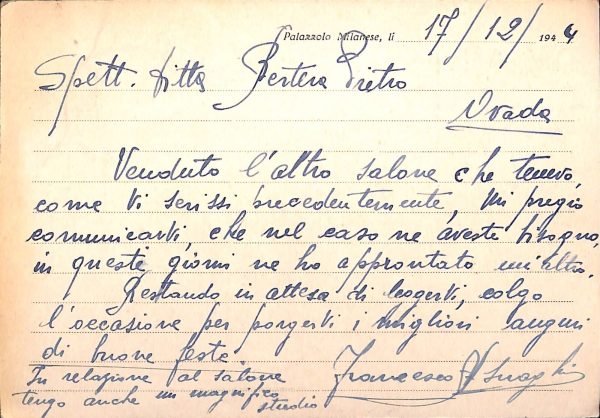 Palazzolo Milanese, lì 17/12/1944
Spett. Ditta Bertera Pietro
Ovada
Venduto l'altro salone che tenevo,
come Vi scrissi precedentemente, mi pregio
comunicarVi, che nel caso ne aveste bisogno,
in questi giorni ne ho approntato un'altro.
Restando in attesa di leggerVi, colgo
l'occasione per porgerVi i migliori auguri
di buone feste.
Francesco
In relazione al salone
tengo anche un magnifico
studio